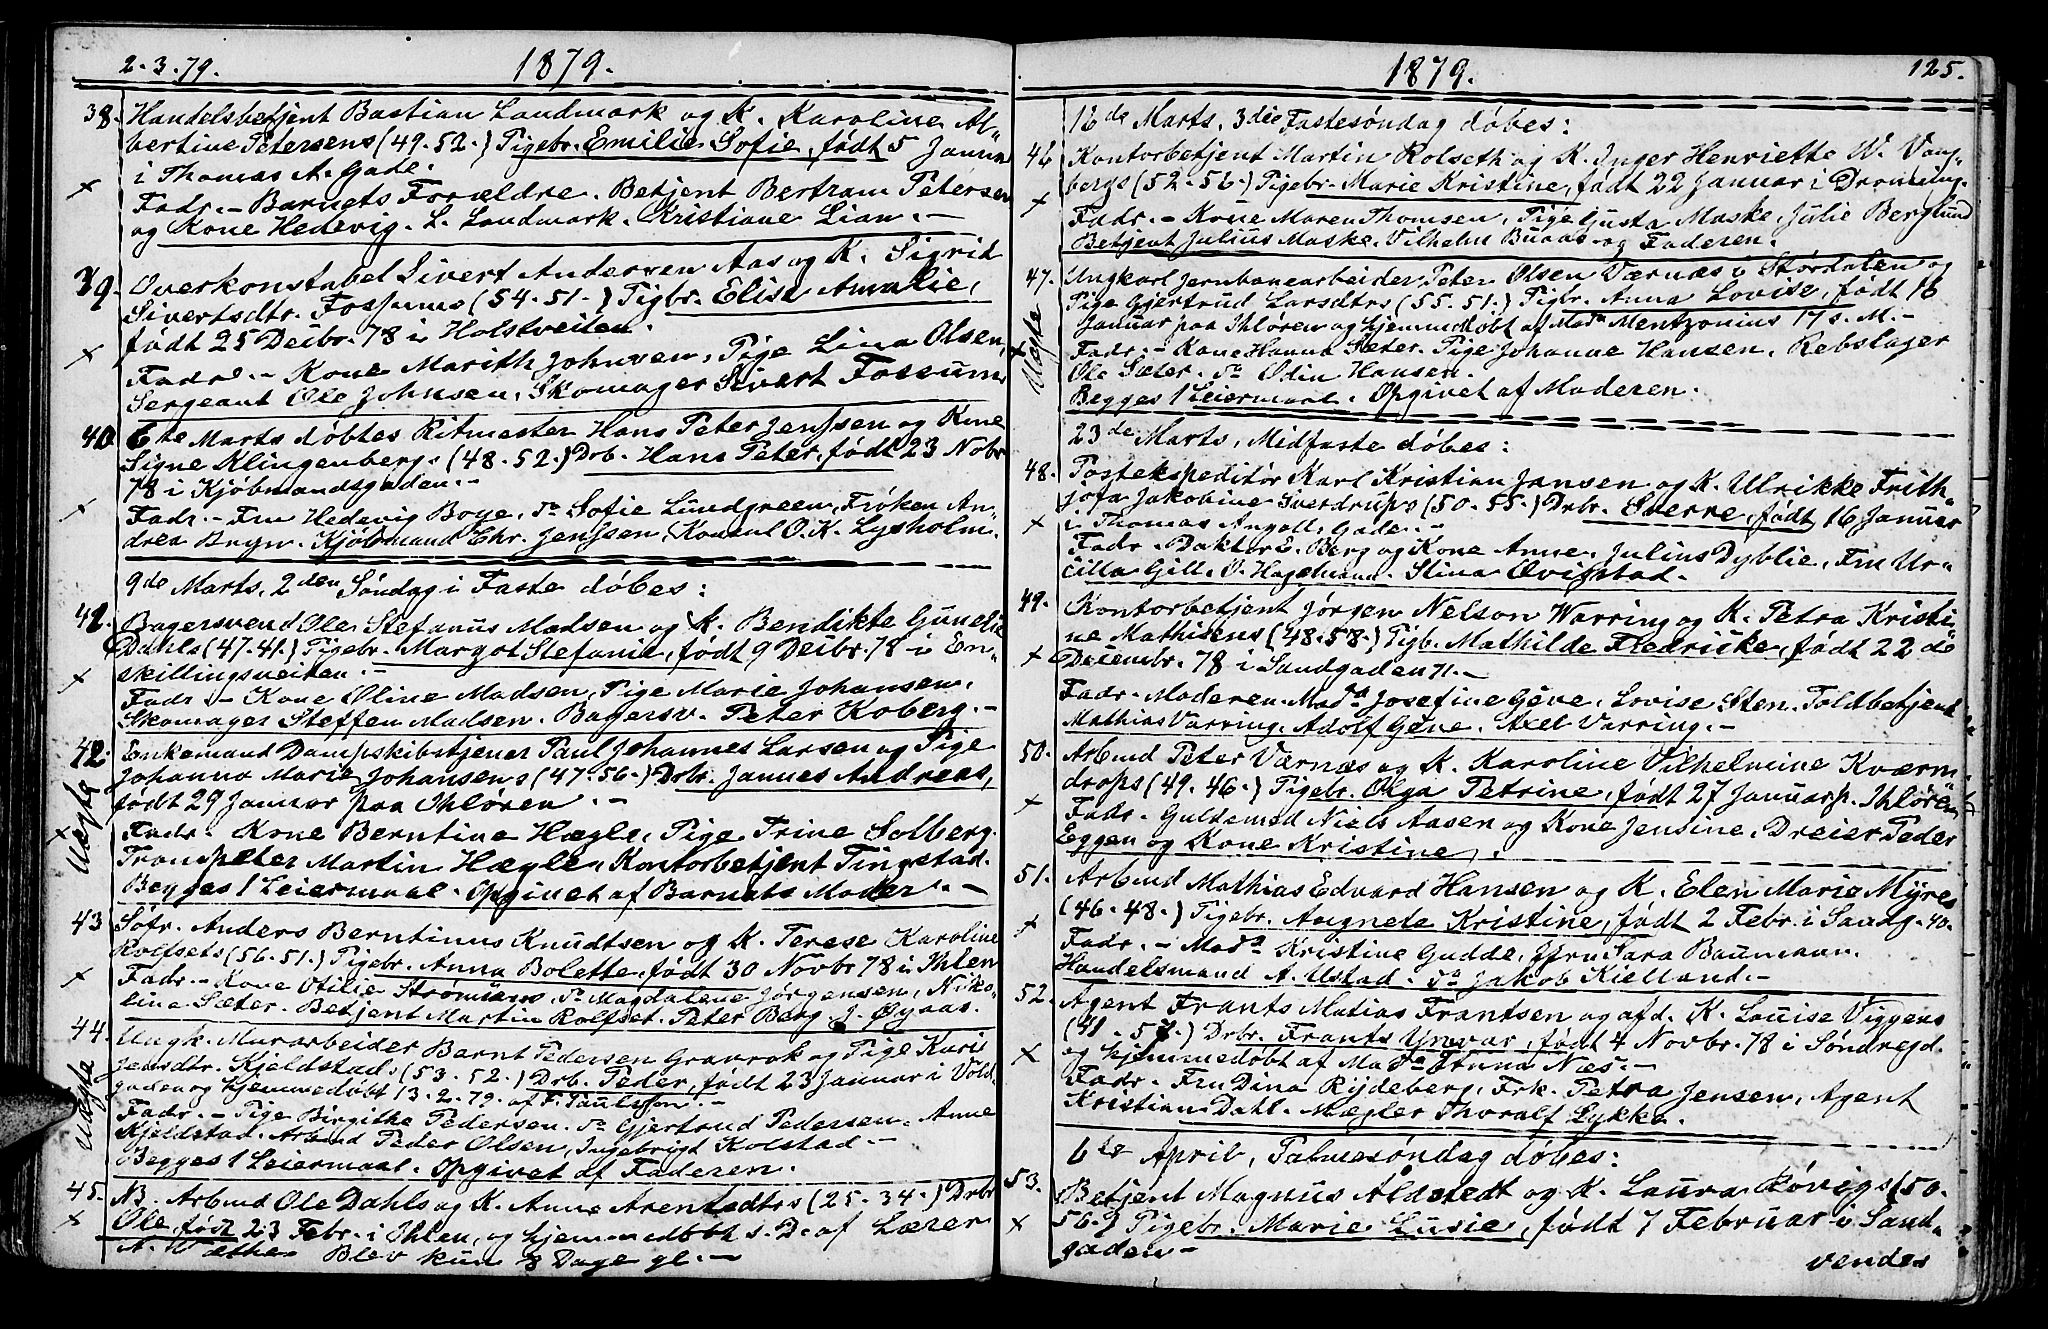 2.3.79. 1879.
38. Handelsbetjent Bastian Landmark og K. Karoline Al-
bertine Petersens (49.52.) Pigebr. Emilie Sofie, født 5 Januar
i Thomas A. Gade.
× Fadr. - Barnets Forældre. Betjent Bertram Petersen
og Kone Hedevig. L. Landmark. Kristiane Lian. -
39. Overkonstabel Sivert Andersen Aas og K. Sigrid
Sivertsdtr. Fossums (54.51.) Pigbr. Elise Amalie,
født 25 Decbr. 78 i Holstveiten.
× Fadr. - Kone Marith Johnsen, Pige Lina Olsen,
Sergeant Ole Johnsen, Skomager Sivert Fossum
40. 6te Marts døbtes Ritmester Hans Peter Jenssen og Kone
Signe Klingenbergs (48.52.) Drb. Hans Peter, født 23 Nobr
78 i Kjøbmandsgaden. -
× Fadr. - Fru Hedevig Boye, do Sofie Lundgreen, Frøken An-
drea Bryn. Kjøbmand Chr. Jenssen, Konsul O. K. Lysholm.
9de Marts, 2den Søndag i Faste døbes:
41. Bagersvend Ole Stefanus Madsen og K. Bendikte Gunelie
Dahls (47.41.) Pigebr. Margot Stefanie, født 9 Decbr. 78 i En-
× skillingsveiten. -
Fadr. - Kone Oline Madsen, Pige Marie Johansen,
Skomager Steffen Madsen. Bagersv. Peter Koberg. -
42. Enkemand Dampskibstjener Paul Johannes Larsen og Pige
Johanna Marie Johansens (47.56.) Drbr. Jannes Andreas,
født 29 Januar paa Ihløren. -
× Uægte Fadr. Kone Berntine Hægle, Pige Trine Solberg.
Trompeter Martin Hægle, Kontorbetjent Tingstad.
Begges 1 Leiermaal. Opgivet af Barnets Moder. -
43 Sófr. Anders Berntinus Knudtsen og K. Terese Karoline
Rolfsets (56.51.) Pigebr. Anna Bolette, født 30 Novbr 78 i Ihlen
× Fadr. - Kone Otilie Strømsnes, do Magdalene Jørgensen, Niko-
lina Sæter. Betjent Martin Rolfset. Peter Berg J. Øyaas.
44. Ungk. Murarbeider Bernt Pedersen Gravrok og Pige Kari
Jensdtr. Kjeldstads (53.52.) Drb. Peder, født 23 Januar i Vold-
gaden og hjemmedøbt 13.2.79. af F. Paulsson. -
Uægte Fadr. - Pige Birgithe Pedersen. do Gjertrud Pedersen. Anne
Kjeldstad. Arbmd Peder Olsen, Ingebrigt Kolstad -
Begges 1 Leiermaal. Opgivet af Faderen.
45. NB. Arbmd Ole Dahls og K. Anne Arentsdtrs (25.34.) Drbr
× Ole, født 23 Febr. i Ihlen, og hjemmedøbt s. D. af Lærer
A. Wæthe Blev kun 8 Dage gl. -
1879. 125.
16de Marts, 3die Fastesøndag døbes:
46 Kontorbetjent Martin Rolseth og K. Inger Henriette W. Vang-
bergs (52.56.) Pigebr. Marie Kristine, født 22 Januar i Dronning.
× Fadr. - Kone Maren Thomsen, Pige Gusta Maske, Julie Berglund
Betjent Julius Maske. Vilhelm Buaas og Faderen.
47. Ungkarl Jernbanearbeider Peter Olsen Værnæs i Størdalen og
Pige Gjertrud Larsdtrs (55.51.) Pigbr. Anna Lovise, født 16
Januar paa Ihløren og hjemmedøbt af Mada Mentzonius 17 s. M. -
× Uægte Fadr. - Kone Hanna Sæter. Pige Johanne Hansen. Rebslager
Ole Sæter. do Odin Hansen.
Begges 1 Leiermaal. Opgivet af Moderen.
23de Marts, Midfaste døbes:
48. Postekspeditør Karl Kristian Jansen og K. Ulrikke Frith-
jofa Jakobine Sverdrups (50.55.) Drbr. Sverre, født 16 Januar
× i Thomas Angell. Gade. -
Fadr. Doktor E. Berg og Kone Anne. Julius Dyblie, Fru Ur-
cilla Gill. O. Hagelmann. Stina Qvigstad. -
49. Kontorbetjent Jørgen Nelson Warring og K. Petra Kristi-
ne Mathisens (48.58.) Pigb. Mathilde Fredrikke, født 22de
× Decembr. 78 i Sandgaden 71. -
Fadr. Moderen. Mada Josefine Gêve, Lovise Sten. Toldbetjent
Mathias Varring. Adolf Gêve. Axel Varring. -
50. Arbmd Peter Værnæs og K. Karoline Vilhelmine Kværn-
drops (49.46.) Pigebr. Olga Petrine, født 27 Januar p. Ihløren
× Fadr. Guldsmed Niels Aasen og Kone Jensine. Dreier Peder
Eggen og Kone Kristine.
51. Arbmd Mathias Edvard Hansen og K. Elen Marie Myres
(46.48.) Pigebr. Angnete Kristine, født 2 Febr. i Sandg. 40.
× Fadr. - Mada Kristine Gudde, Jfru Sara Baumann.
Handelsmand A. Ustad. do Jakob Kielland. -
52. Agent Frants Matias Frantsen og afd. K. Louise Viggens
(41.57.) Drbr. Frants Yngvar, født 4 Novbr. 78 i Søndregd.
× og hjemmedøbt af Mada Anna Næs. -
Fadr. Fru Dina Rydeberg, Frk. Petra Jensen, Agent
Kristian Dahl. Mægler Thoralf Lykke.
6te April, Palmesøndag døbes:
53. Betjent Magnus Aldstedt og K. Laura Røvigs (50.
× 56.) Pigebr. Marie Lusie, født 7 Februar i Sand-
gaden -
vendes